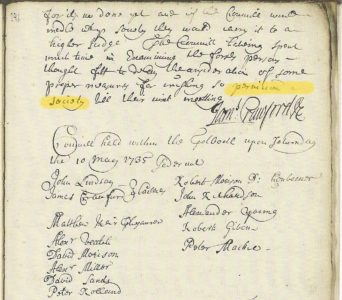 for it is done yet and if the Council would
medle they society they would cary it to a
higher Judge The Council having spent
much time in Examining the forsd person
thought fitt to delay the consideration of some
proper measures for crushing so pernicious a
society till their next meeting
Council held within the Tolbooth upon Saturday
the 10 May 1735 Sederunt
John Lindsay
James Crawfurd Bailies
Matthew Weir
Alexr
David Morison
Alexr Miller
David Sands
Peter Rolland
Robert Morison
John Richardson
Alexander Young
Robert Gibson
Peter Mackie